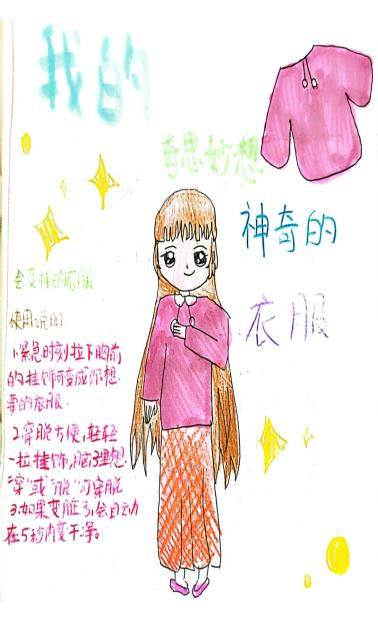 我的
奇思妙想
神奇的
衣服
会变样的衣服
使用说明
1.紧急时刻拉下胸前
的挂饰可变成你想
要的衣服.
2.穿脱方便,轻轻
一拉挂饰,脑子里想
“穿”或“脱”可穿脱
3.如果变脏了,会自动
在5秒内变干净。